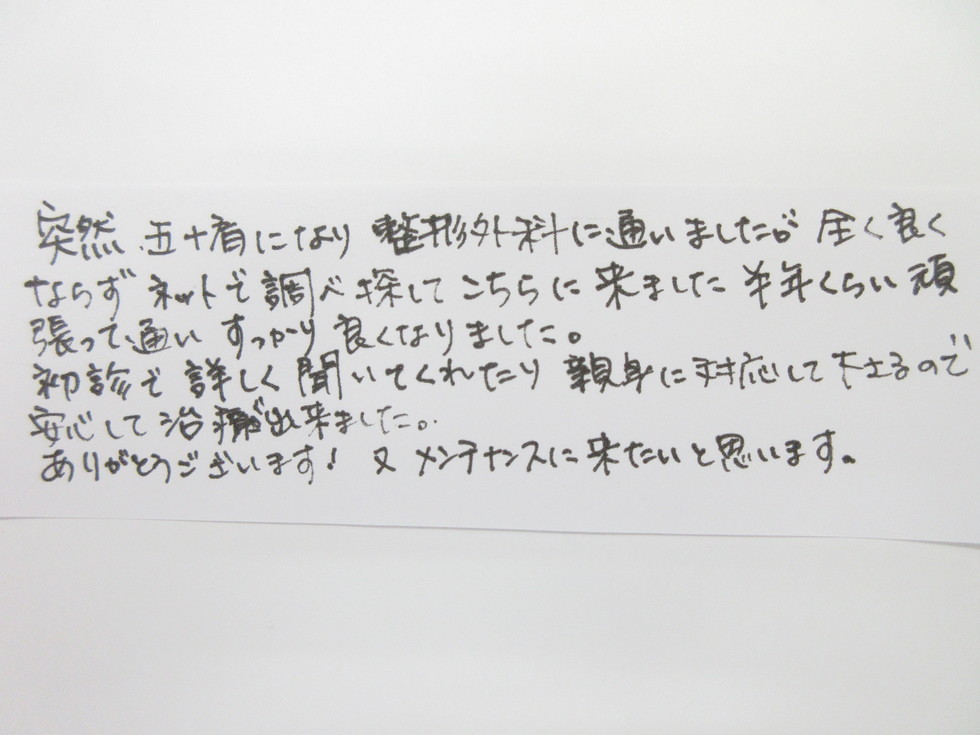 突然、五十肩になり 整形外科に通いましたが 全く良く
ならず ネットで調べ探して こちらに 来ました 半年くらい 頑
張って通い すっかり 良くなりました。
初診で 詳しく 聞いてくれたり 親身に対応して下さるので
安心して治療が出来ました。
ありがとうございます! 又 メンテナンスに来たいと思います。